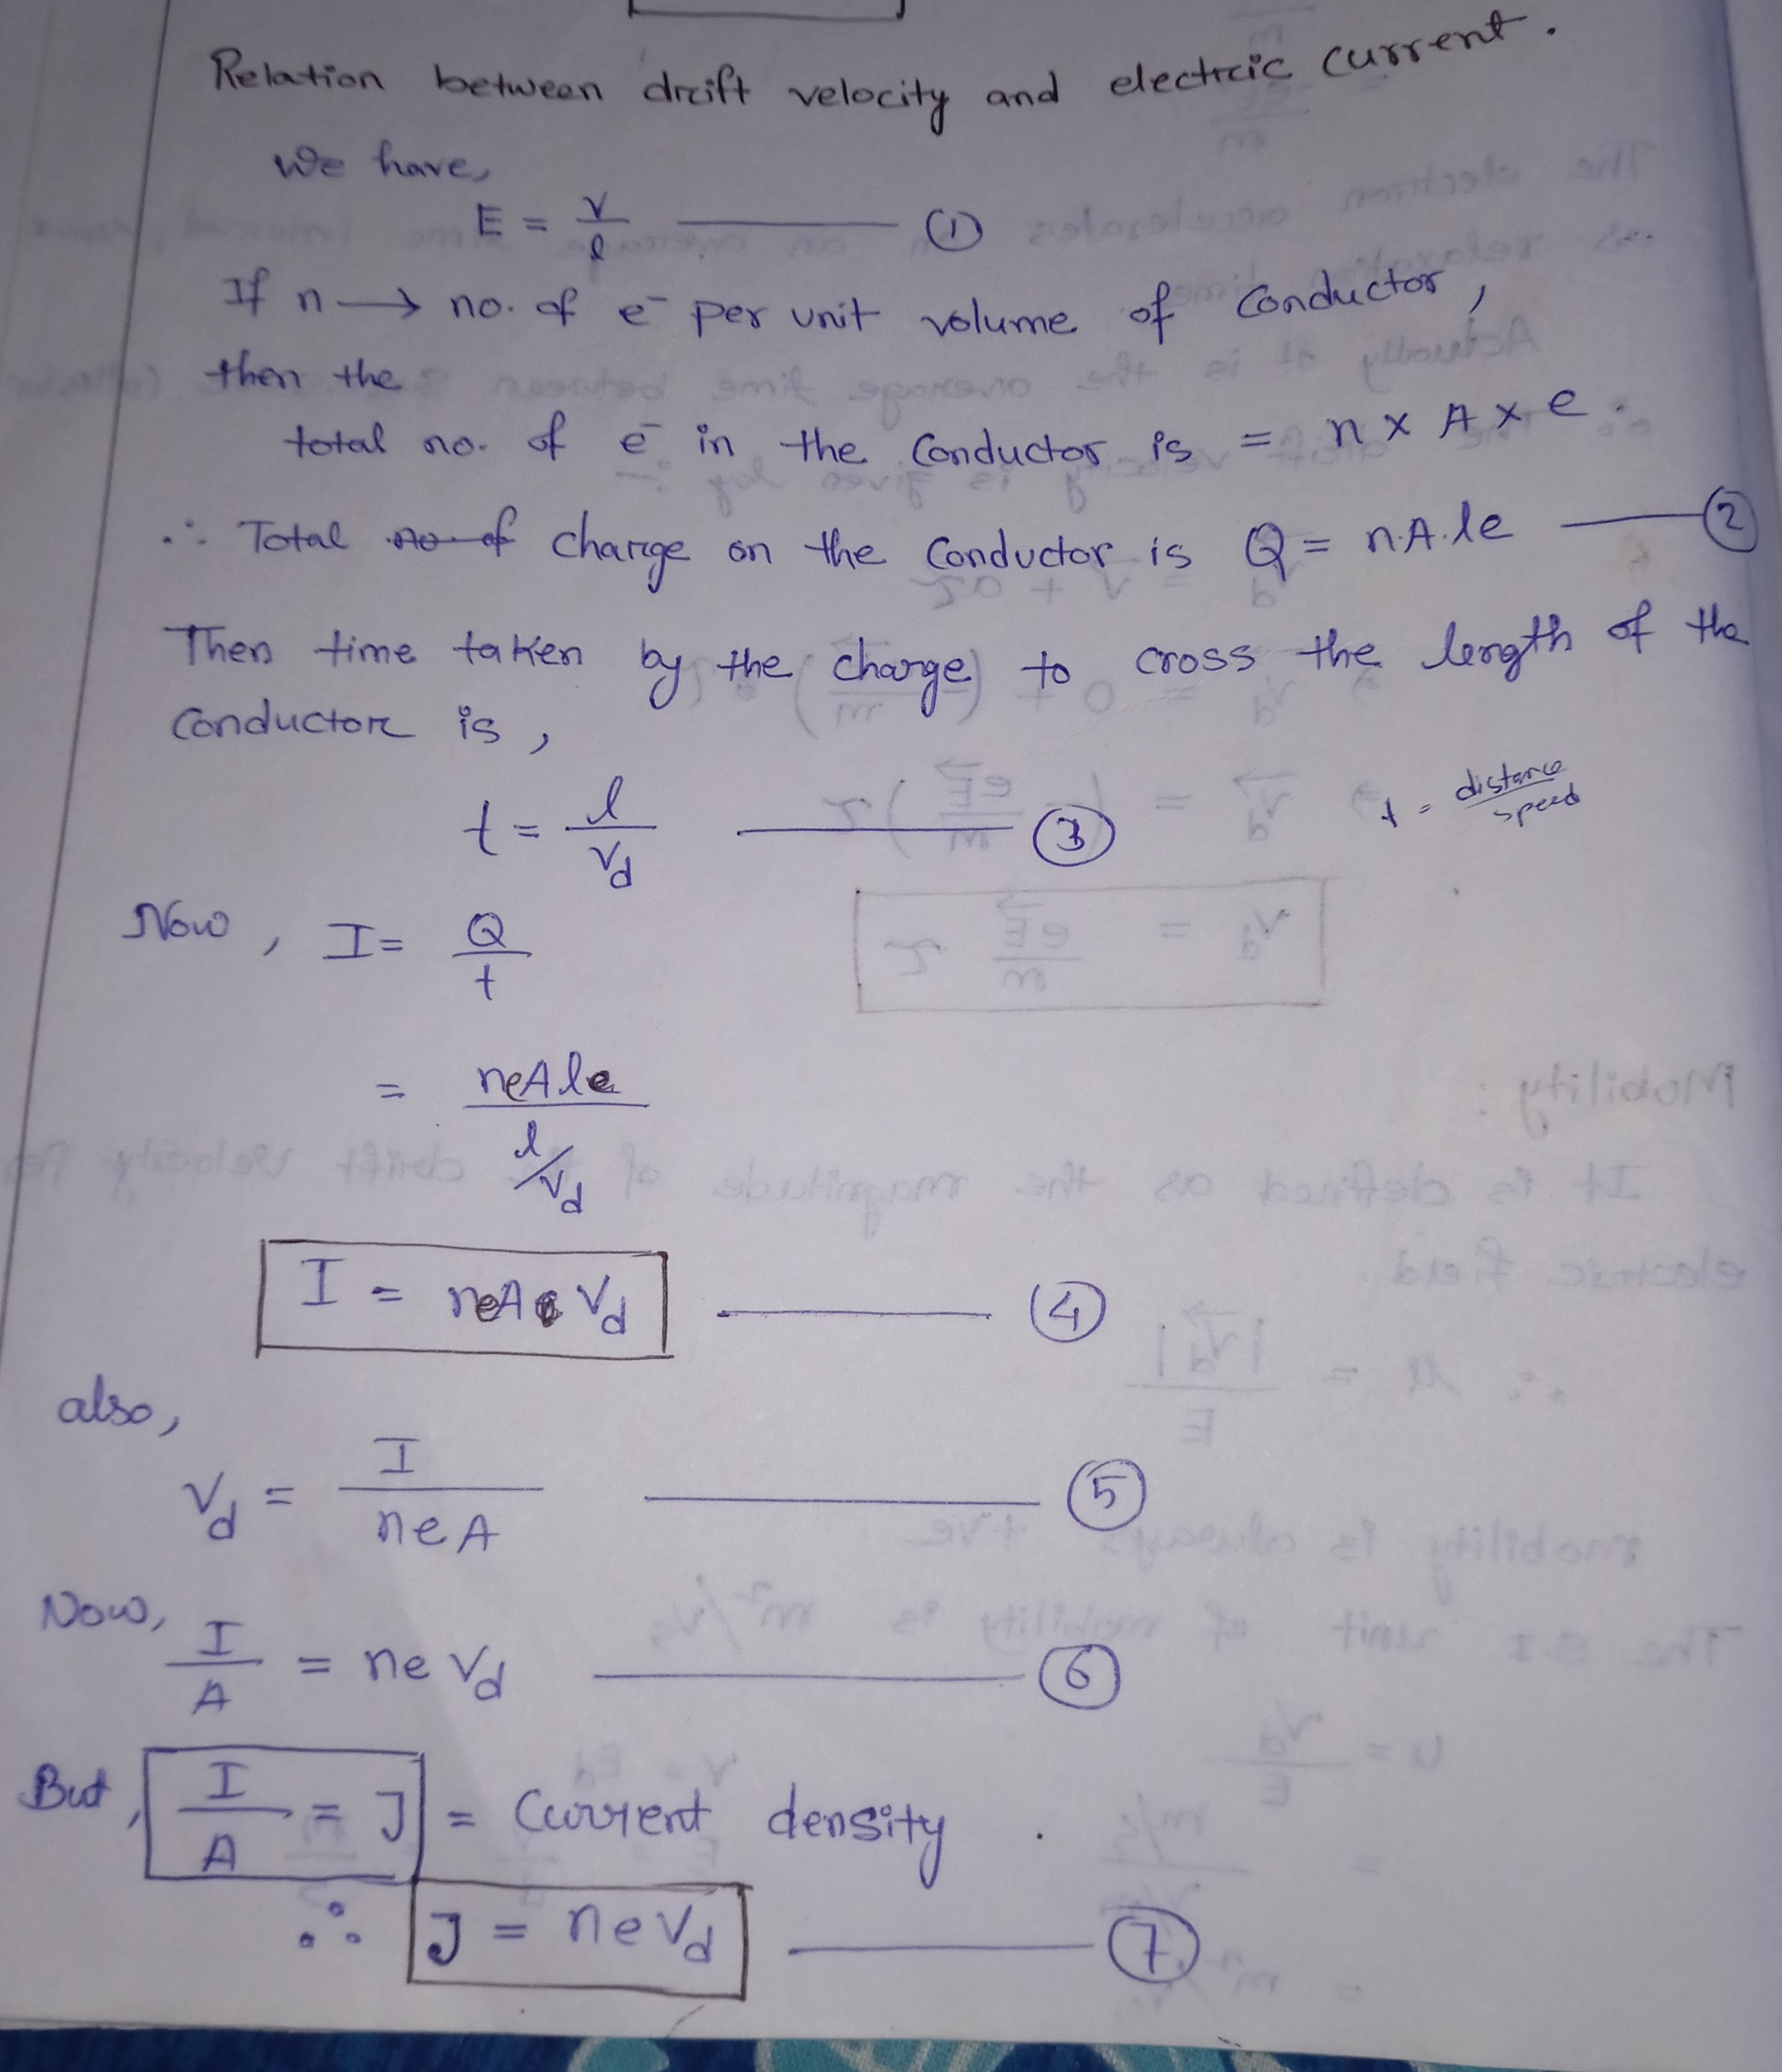 Relation between drift velocity and electric current.
We have,
E = V/l ——— ①
If n → no. of e⁻ per unit volume of conductor,
then the
total no. of e⁻ in the conductor is = n × A × e.
∴ Total no of charge on the conductor is Q = n.A.le ——— ②
Then time taken by the charge to cross the length of the
conductor is,
t = l/Vd ——— ③ t = distance/speed
Now, I = Q/t
= neAle / l/Vd
I = neA Vd ——— ④
also,
Vd = I/neA ——— ⑤
Now, I/A = ne Vd ——— ⑥
But, I/A = J = Current density.
∴ J = neVd ——— ⑦